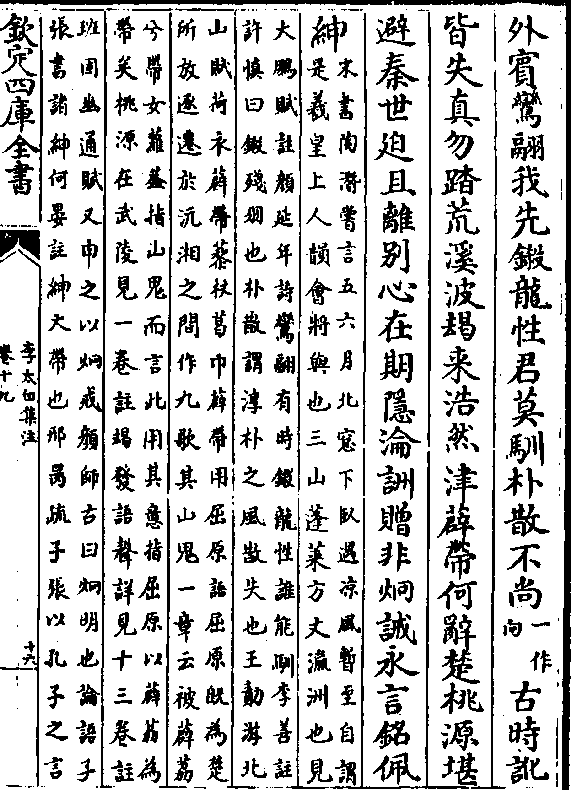 外賓鸞翮我先鎩龍性君莫馴朴散不尚一作向古時訛
皆失真勿踏荒溪波朅来浩然津薜帶何辭楚桃源堪
避秦世迫且離別心在期隱淪詶贈非炯誡永言銘佩
紳
宋書陶潛嘗言五六月北窓下臥遇凉風暫至自謂
是羲皇上人韻會將與也三山蓬萊方丈瀛洲也見
大鵬賦註顔延年詩鸞翮有時鎩龍性誰能馴李善註
許慎曰鎩殘羽也朴散謂淳朴之風散失也王勃游北
山賦荷衣薜帶藜杖葛巾薜帶用屈原語屈原既為楚
所放逐遷於沅湘之間作九歌其山鬼一章云被薜荔
兮帶女蘿蓋指山鬼而言此用其意指屈原以薜荔為
帶矣桃源在武陵見一卷註朅發語聲詳見十三卷註
班固幽通賦又申之以炯戒顔師古曰炯明也論語子
張書諸紳何晏註紳大帶也邢昺疏子張以孔子之言
欽定四庫全書
李太白集注
卷十九
十六